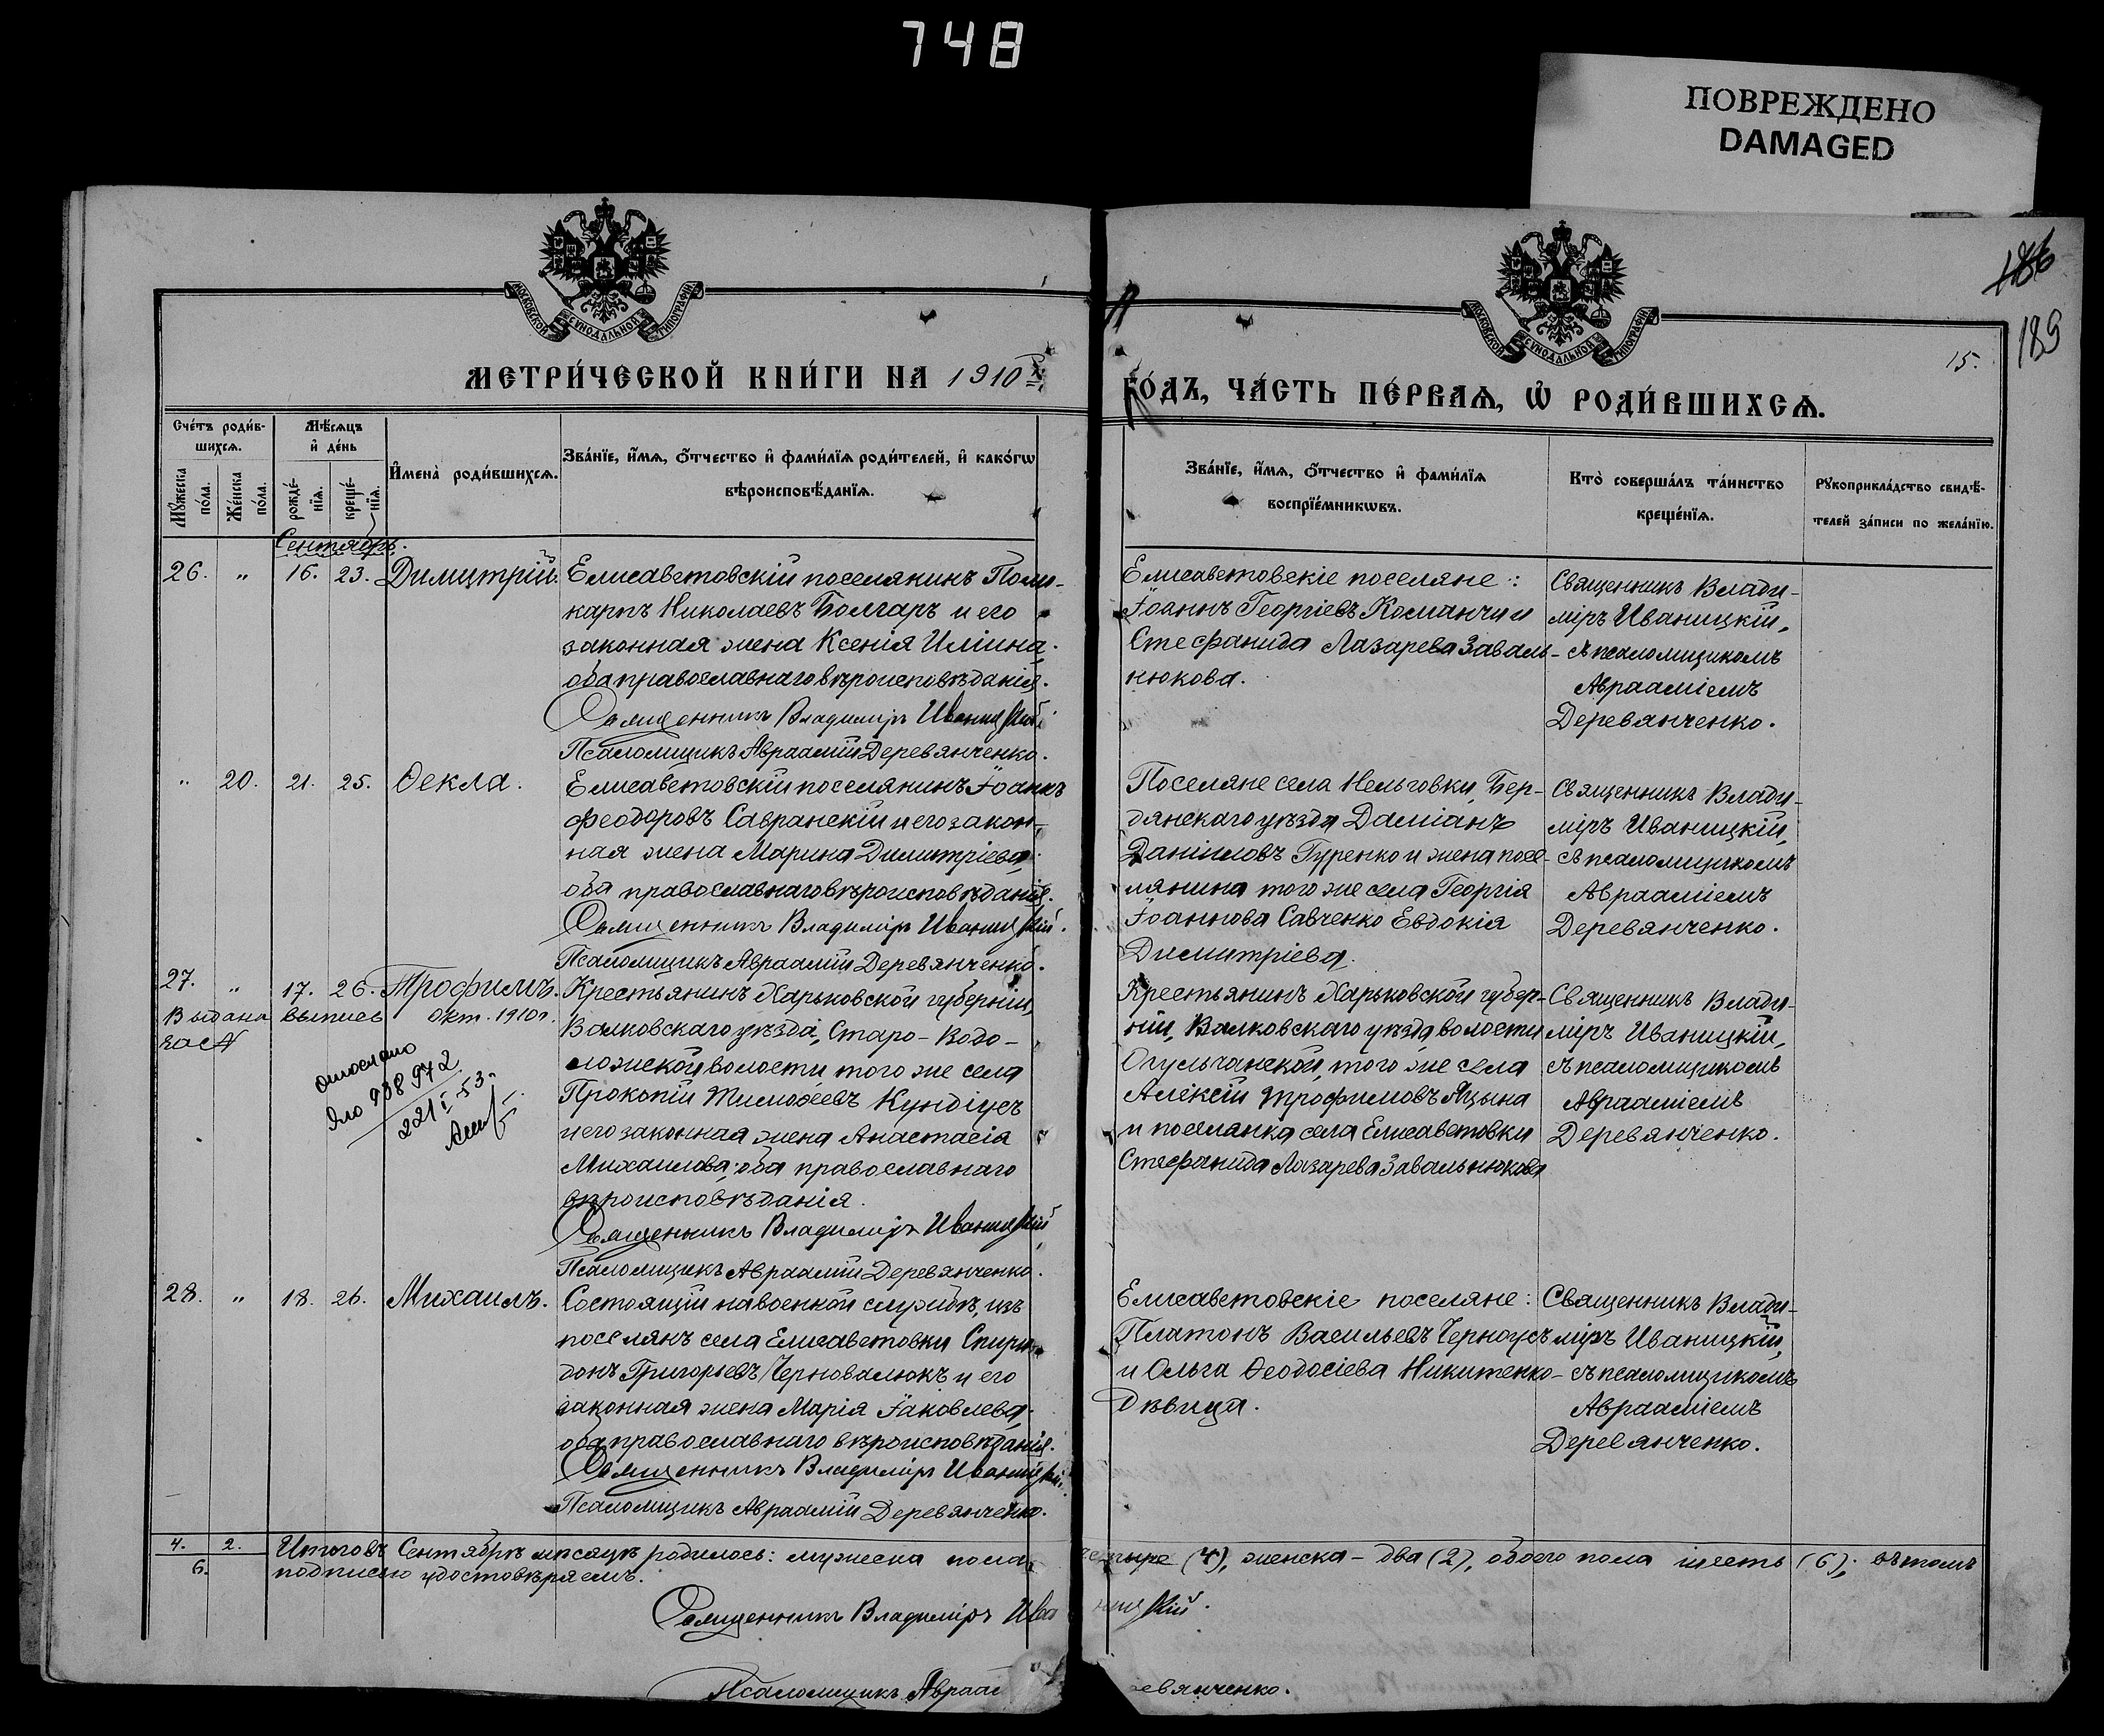 748
ПОВРЕЖДЕНО
DAMAGED
МОСКОВСКОЙ СѴНОДАЛЬНОЙ ТИПОГРАФІИ
МОСКОВСКОЙ СѴНОДАЛЬНОЙ ТИПОГРАФІИ
186
189
15.
МЕТРИ́ЧЕСКОЙ КНИ́ГИ НА 1910й
ГО́ДЪ, ЧА́СТЬ ПЕ́РВАѦ, Ѡ РОДИ́ВШИХСѦ.
Сче́тъ роди́в-
шихсѧ.
Мꙋ́жеска по́ла.
Же́нска по́ла.
Мѣ́сѧцъ
и҆ де́нь
рожде́-
нїѧ.
креще́-
нїѧ.
И҆мена̀ роди́вшихсѧ.
Зва́нїе, и҆́мѧ, ѻ҆́тчество и҆ фами́лїѧ роди́телей, и҆ како́гѡ
вѣроисповѣ́данїѧ.
Зва́нїе, и҆́мѧ, ѻ҆́тчество и҆ фами́лїѧ
воспрїе́мникѡвъ.
Кто̀ соверша́лъ та́инство
креще́нїѧ.
Рꙋкоприкла́дство свидѣ́-
телей за́писи по жела́нїю.
Сентябрь.
26. " 16. 23. Димитрій.
Елисаветовскій поселянинъ Поли-
карпъ Николаевъ Болгаръ и его
законная жена Ксенія Иліина;
оба православнаго вѣроисповѣданія.
Священникъ Владиміръ Иваницкій
Псаломщикъ Авраамій Деревянченко.
Елисаветовскіе поселяне:
Іоаннъ Георгіевъ Команчи и
Стефанида Лазарева Заваль-
нюкова.
Священникъ Влади-
міръ Иваницкій,
съ псаломщикомъ
Авраамiемъ
Деревянченко.
" 20. 21. 25. Ѳекла.
Елисаветовскій поселянинъ Іоаннъ
Феодоровъ Савранскій и его закон-
ная жена Марина Димитріева;
оба православнаго вѣроисповѣданія.
Священникъ Владиміръ Иваницкій.
Псаломщикъ Авраамій Деревянченко.
Поселяне села Нельговки, Бер-
дянскаго уѣзда Даміанъ
Даніиловъ Гуренко и жена посе-
лянина того же села Георгія
Іоаннова Савченко Евдокія
Димитріева.
Священникъ Влади-
міръ Иваницкій,
съ псаломщикомъ
Авраамiемъ
Деревянченко.
27. " 17. 26. Трофимъ.
Выдана выпись окт. 1910г.
за №
938972
221
Крестьянинъ Харьковской губерніи,
Валковскаго уѣзда, Старо-Водо-
ложской волости, того же села
Прокопій Тимоѳеевъ Кундіусъ
и его законная жена Анастасія
Михаилова; оба православнаго
вѣроисповѣданія.
Священникъ Владиміръ Иваницкій
Псаломщикъ Авраамій Деревянченко.
Крестьянинъ Харьковской губер-
ніи, Валковскаго уѣзда волости
Огульчанской, того же села
Алексій Трофимовъ Яцына
и поселянка села Елисаветовки
Стефанида Лазарева Завальнюкова
Священникъ Влади-
міръ Иваницкій,
съ псаломщикомъ
Авраамiемъ
Деревянченко.
28. " 18. 26. Михаилъ.
Состоящій на военной службѣ, изъ
поселянъ села Елисаветовки Спири-
донъ Григорьевъ Черновалюкъ и его
законная жена Марія Іаковлева;
оба православнаго вѣроисповѣданія.
Священникъ Владиміръ Иваницкій
Псаломщикъ Авраамій Деревянченко.
Елисаветовскіе поселяне:
Платонъ Васильевъ Черноусъ
и Ольга Ѳеодосіева Никитенко-
дѣвица.
Священникъ Влади-
міръ Иваницкій,
съ псаломщикомъ
Авраамiемъ
Деревянченко.
4. 2. Итого въ Сентябрѣ мѣсяцѣ родилось: мужеска пола четыре (4), женска – два (2), обоего пола шесть (6); въ томъ
6. подписью удостовѣряемъ.
Священникъ Владиміръ Иваницкій.
Псаломщикъ Авраам евянченко.